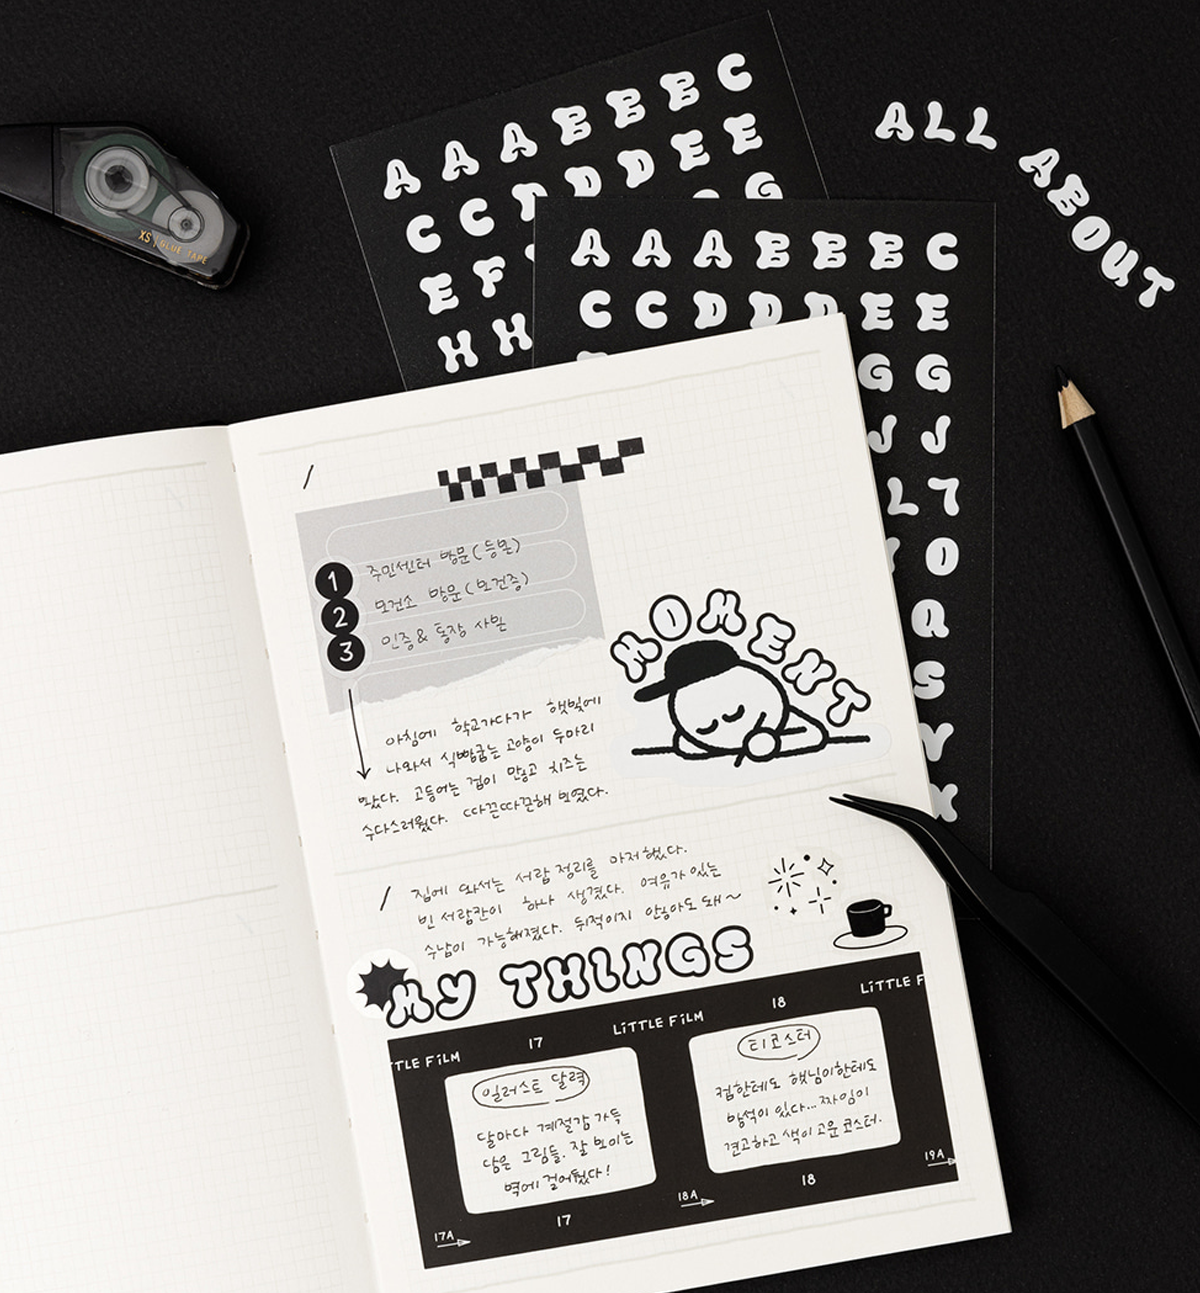 A A A B B B C
C C D D D E E
E F G G
H H
A A A B B B C
C C D D D E E
G G
J J
L 7
O
Q
S
Y
X
ALL ABOUT
XS | GLUE TAPE
1 주민센터 방문(등본)
2 보건소 방문(보건증)
3 인증 & 통장 사본
MOMENT
아침에 학교가다가 햇빛에
나와서 식빵굽는 고양이 두마리
봤다. 고등어는 겁이 많고 치즈는
수다스러웠다. 따끈따끈해 보였다.
집에 와서는 서랍 정리를 마저 했다.
빈 서랍칸이 하나 생겼다. 여유가 있는
수납이 가능해졌다. 뒤적이지 않아도 돼~
MY THINGS
TLE FiLM 17 LiTTLE FiLM 18 LiTTLE F
일러스트 달력
달마다 계절감 가득
담은 그림들. 잘 보이는
벽에 걸어뒀다!
티코스터
컵한테도 햇님이한테도
방석이 있다... 짜임이
견고하고 색이 고운 코스터.
17A 17 18A 18 19A